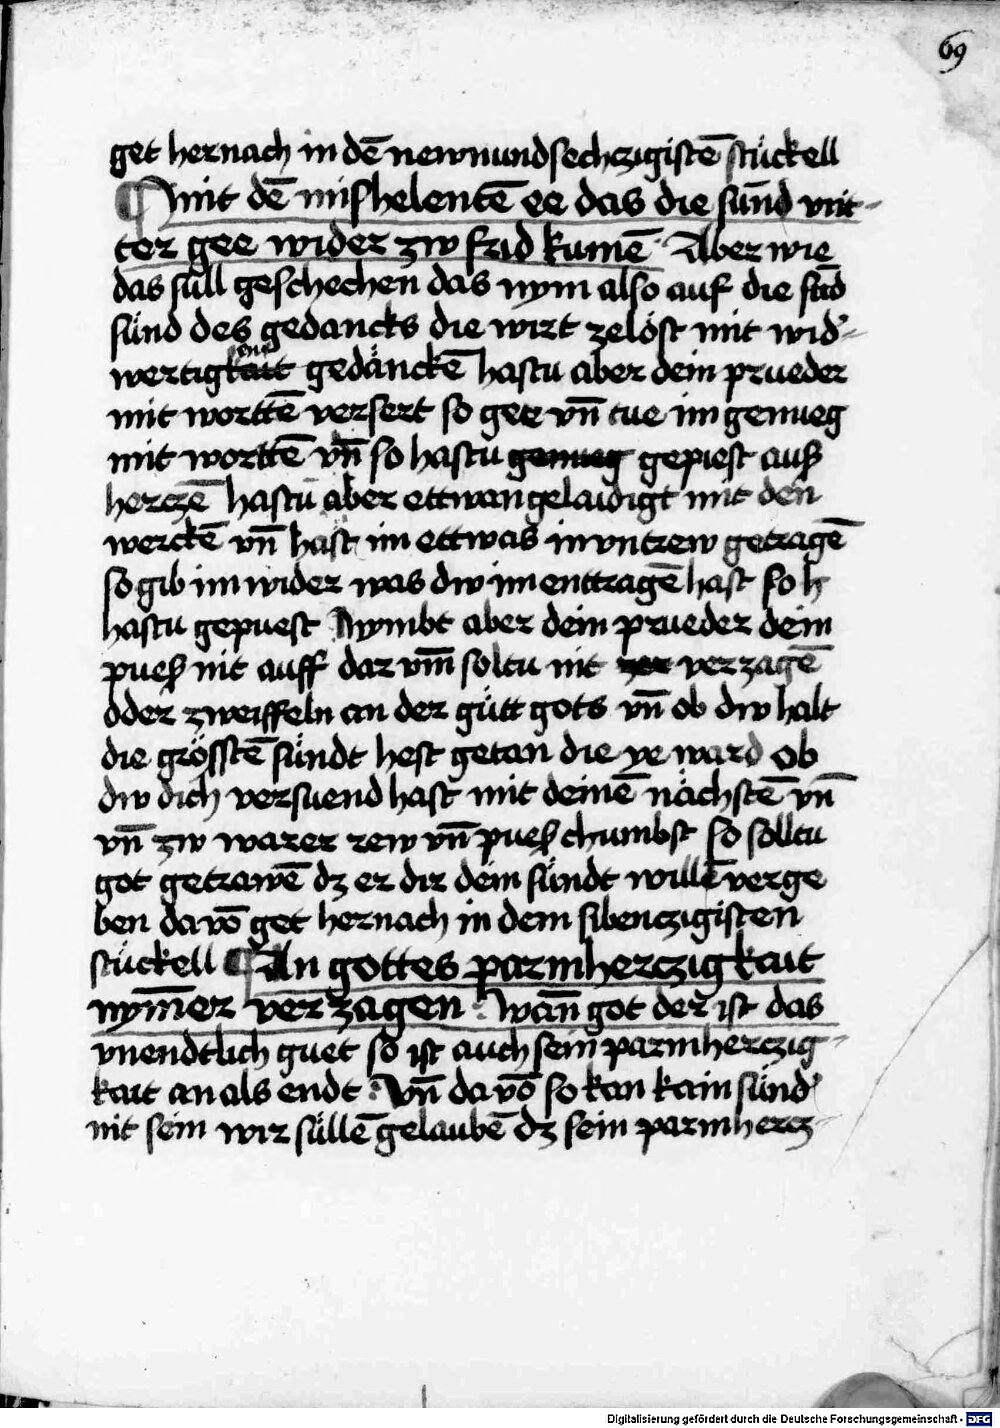 69
get hernach in dē newnundsechczigistē stückell
¶ mit dē mishelentē ee das die sūnd vnt-
ter gee wider zw frid kumē Aber wie
das süll geschechen das nym also auf die sūd
sünd des gedancks die wirt zelöst mit wid'-
wertigen gedänckē hastu aber dein prueder
mit worttē versert so gee vn̄ tue im genueg
mit worttē vn̄ so hastu genueg gepiest aus
herczē hastu aber ettwan gelaidigt mit den
werckē vn̄ hast im ettwas in vntrew getragē
so gib im wider was dw im enttragē hast so h
hastu gepuest Nymbt aber dein prueder dein
pues nit auff dar vm̄ soltu nit verzagē
oder zweiffeln an der gütt gots vn̄ ob dw halt
die grösstē sündt hest getan die ye ward ob
dw dich versuend hast mit deinē nächstē vn̄
vn̄ zw warer rew vn̄ pues chumbst so solltu
got getrawē dz er dir dein sündt willē verge
ben da vō get hernach in dem sibenczigisten
stückell ¶ An gottes parmherczigkait
nym̄er verzagen : wān got der ist das
vnendtlich guet so ist auch sein parmherczig-
kait an als endt : Vn̄ da vō so kan kain sünd'
nit sein wir süllē gelaubē dz sein parmhercz-
Digitalisierung gefördert durch die Deutsche Forschungsgemeinschaft - DFG